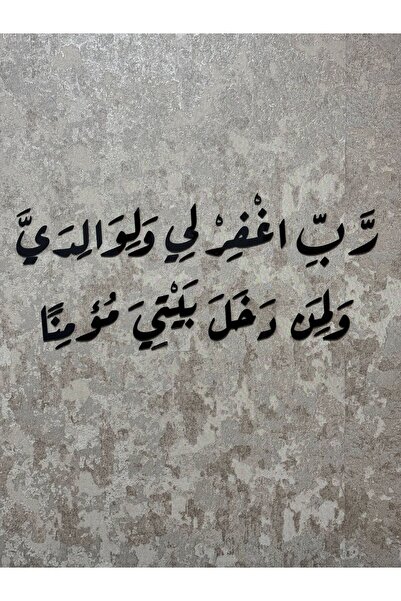 رَّبِّ اغْفِرْ لِي وَلِوَالِدَيَّ
وَلِمَن دَخَلَ بَيْتِيَ مُؤْمِنًا